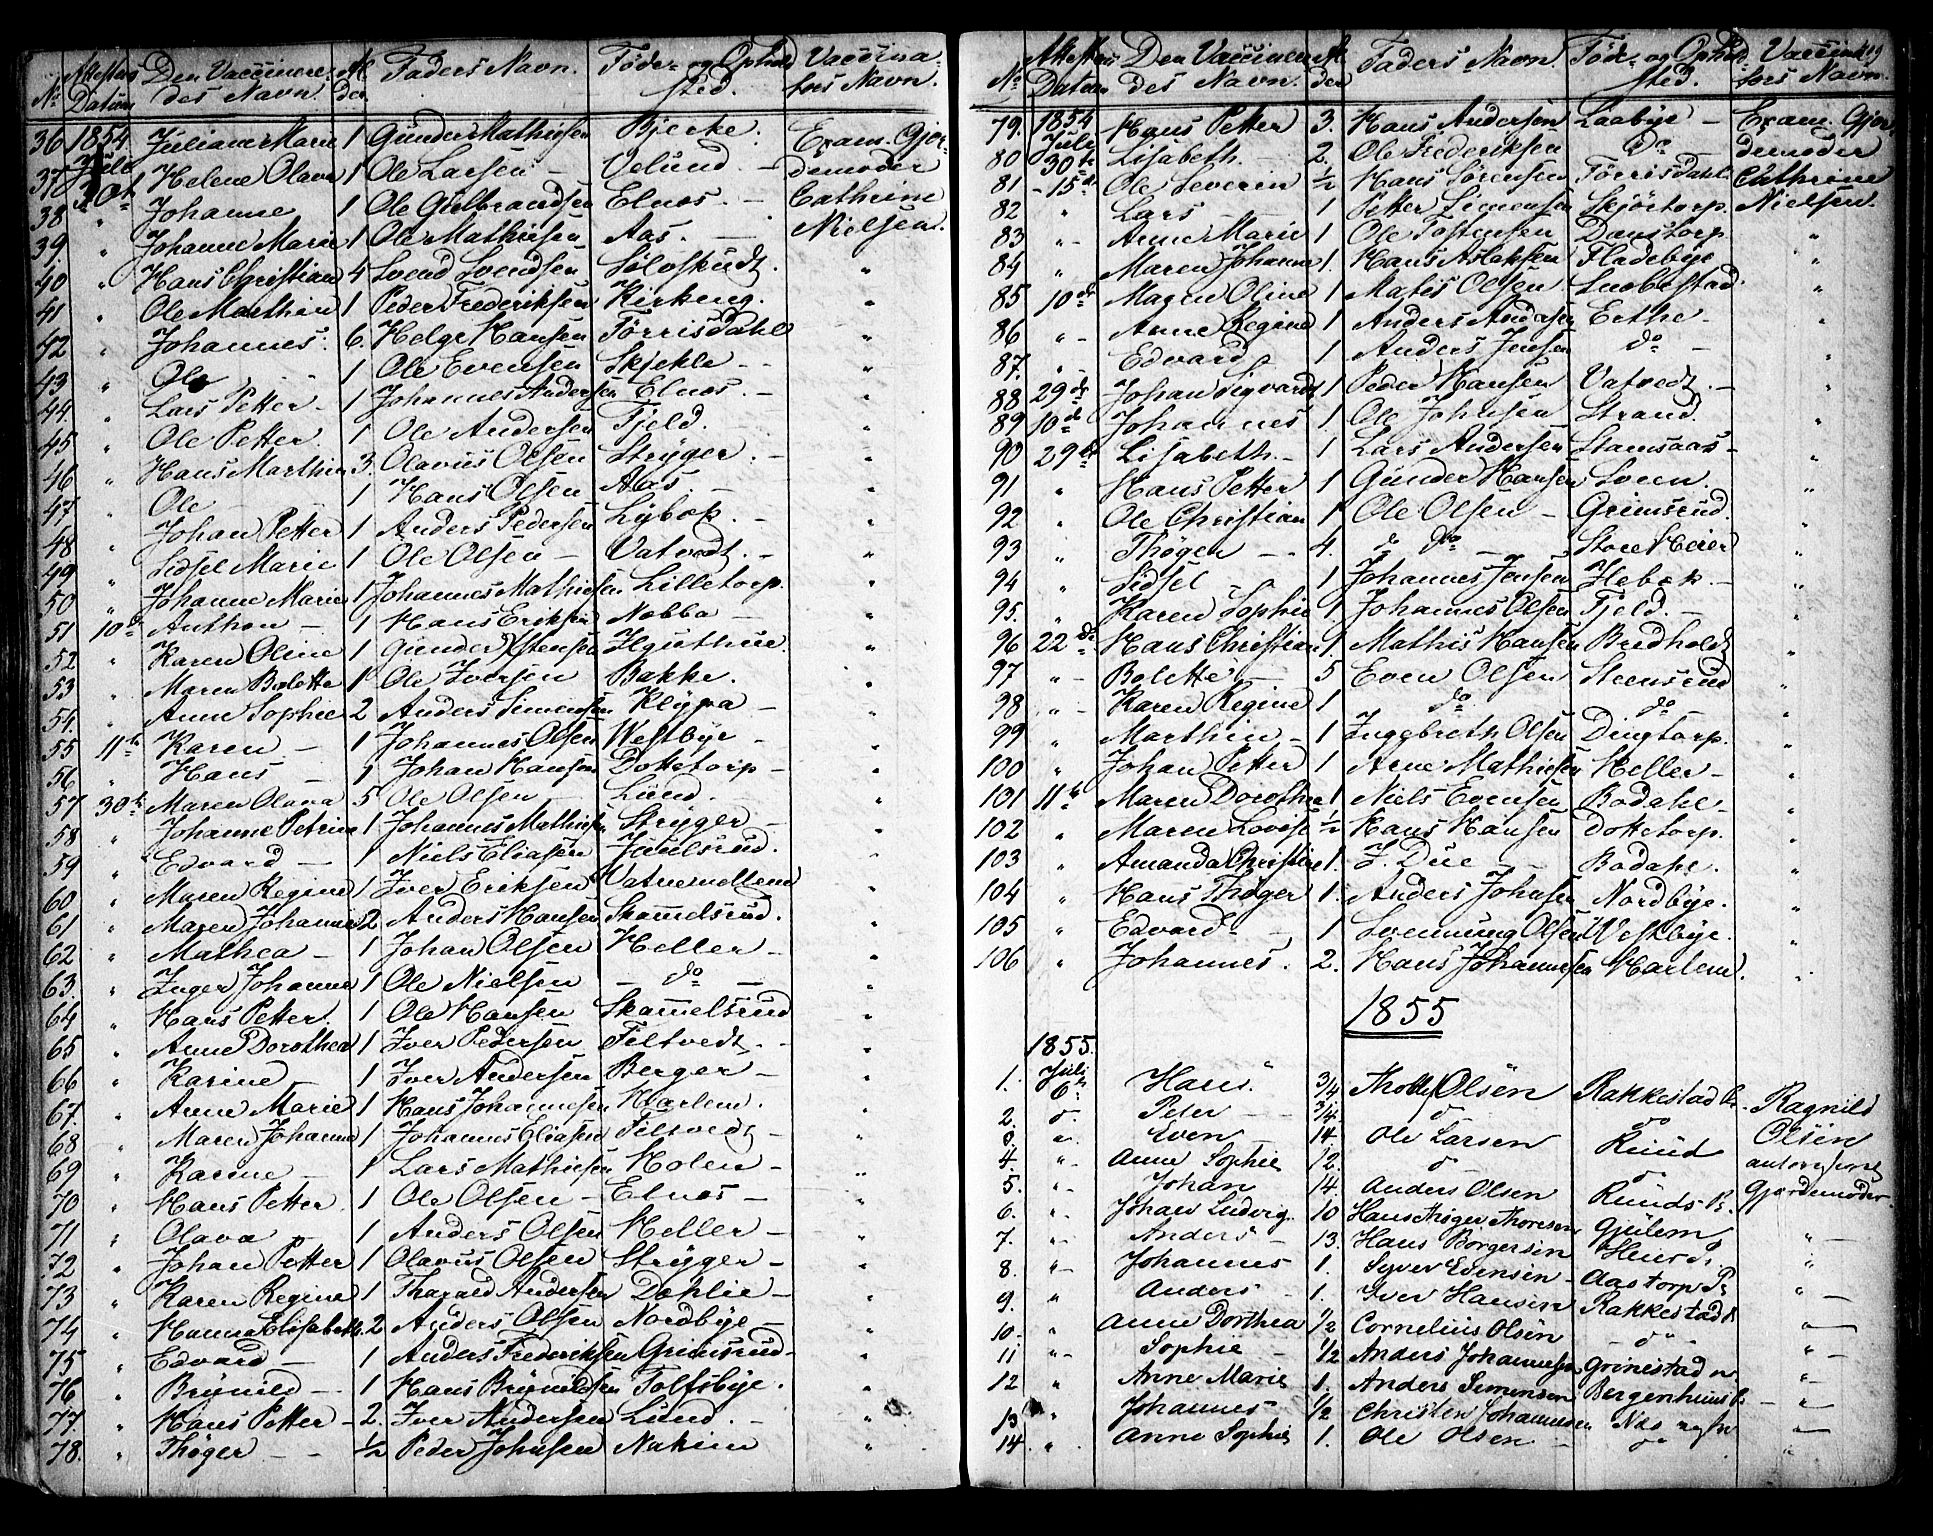 No Attestens Datum Den Vaccinere- des Navn. Al- der. Faders Navn. Føde- og Opholds sted. Vaccina- tors Navn.
36 1854 Juliane Marie 1 Gunder Mathiesen Bjerke. Exam. Gjor-
37 Juli Helene Olava 1 Ole Larsen - Velund - demoder
38 30te Johanne 1 Ole Gulbrandsen Elnæs. - Cathrine
39 " Johanne Marie 1 Ole Mathiesen Aas. - Nielsen.
40 " Hans Christian 4 Svend Svendsen Sølvskudt. "
41 " Ole Marthin 1 Peder Frederiksen Kirkeng. "
42 " Johannes. 6. Helge Hansen Tørrisdahl "
43 " Ole - 1 Ole Evensen Skjekle - - "
44. " Lars Petter - 1 Johannes Andersen Elnæs. - "
45 " Ole Petter. 1 Ole Andersen Fjeld. - "
46 " Hans Marthin 3. Olavus Olsen Stryger. - "
47 " Ole - 1 Hans Olsen Aas. - "
48 " Johan Petter 1 Anders Pedersen Lybæk. - "
49 " Sidsel Marie 1 Ole Olsen - Vatvedt. - "
50 " Johanne Marie 1 Johannes Mathiesen Lilletorp. "
51 10de Anthon - 1 Hans Eriksen Nabba - "
52 " Karen Oline 1 Gunder Ystensen "
53 " Maren Bolette 1 Ole Iversen Bakke. "
54. " Anne Sophie 2 Anders Simensen Klypa - "
55 11te Karen - 1 Johannes Olsen Westbye - "
56 " Hans - 1 Johan Hansen Dottetorp - "
57 30te Maren Olava 5 Ole Olsen - Lund. - "
58 " Johanne Petrine 1 Johannes Mathiesen Stryger - "
59 " Edvard - 1 Niels Eliasen Juulsrud. "
60 " Maren Regine 1 Iver Eriksen Vatnemellem "
61 " Maren Johanne 2 Anders Hansen Skamelsrud. "
62 " Mathea - 1 Johan Olsen Heller - "
63. " Inger Johanne 1 Ole Nielsen - do - "
64 " Hans Petter. 1 Ole Hansen Skamelsrud "
65 " Anne Dorothea 1 Iver Pedersen Filtvedt. - "
66 " Karine - 1 Iver Andersen Berger - "
67. " Anne Marie 1 Hans Johannesen Harlem. "
68 " Maren Johanne 1 Johannes Eliasen Filtvedt - "
69 " Karine - 1 Lars Mathiesen Holen - "
70 " Hans Petter. 1 Ole Olsen - Elnæs - "
71 " Olava - 1 Anders Olsen Heller - "
72 " Johan Petter 1 Olavus Olsen Stryger - "
73 " Karen Regine 1 Tharald Andersen Dæhlie - "
74 " Hanna Elisabeth. 2 Anders Olsen Nordbye - "
75 " Edvard - 1 Anders Frederiksen Grimsrud - "
76 " Brynild - 1 Hans Brynildsen Tolfsbye. "
77 " Hans Petter - 2. Iver Andersen Lund. - "
78. " Thøger - 1/2 Peder Johnsen Nakim "
No Attestens Datum Den Vaccinere- des Navn. Al- der Faders Navn. Føde- og Ophold sted. Vaccina- tors Navn.
79. 1854 Hans Petter 3. Hans Andersen Laabye - Exam. Gjor-
80 Juli 30te Lisabeth. - 2. Ole Frederiksen do - demoder
81 - 15de Ole Severin 1/2 Hans Sørensen Tørrisdahl Cathrine
82 " Lars - 1 Petter Simensen Skjørtorp. Nielsen.
83 " - Anne Marie 1 Ole Tostensen Danstorp "
84 " Maren Johanne 1. Hans Aslaksen Fladebye "
85 10de Maren Oline 1 Matis Olsen Snobestad. "
86 " - Anne Regine 1 Anders Andersen Erthe - "
87. " - Edvard 1 Anders Jensen do - "
88 29de Johan Sigvardt 1 Peder Hansen Vatvedt. - "
89 10de Johannes 1 Ole Johnsen Strand. "
90 29de Lisabeth. - 1 Lars Andersen Stamsaas - "
91 " Hans Petter 1 Gunder Hansen Sveen. "
92 " Ole Christian 1 Ole Olsen - Grimsrud. "
93 " Thøger - - 4. do do - Store Heier "
94 " Sidsel - 1 Johannes Jensen Hebæk. - "
95. " Karen Sophie 1. Johannes Olsen Fjeld. - "
96 22de Hans Christian 1. Mathis Hansen Bredholdt "
97 " - Bolette - 5 Even Olsen Steensrud "
98 " - Karen Regine 1 do do - "
99 " Marthin - 1 Ingebreth Olsen Dingtorp. "
100 " Johan Petter 1 Arne Mathiesen Heller - "
101 11te Maren Dorothea 1 Niels Evensen Bodahl - "
102 " Maren Lovise 1/2 Hans Hansen Dottetorp. "
103 " Amanda Christine 1. J. Due - - Bodahl. "
104 " Hans Thøger 1. Anders Johnsen Nordbye. "
105 " Edvard - - 1 Svennung Olsen Westbye. "
106 " Johannes. 2. Hans Johannesen Harlem. "
1855
1855.
1. Juli 6te Hans. 3/4 Olsen Rakkestad Ragnild
2. d. Peter - - 3/4. do do Olsen
3. " Even - 14. Ole Larsen Ruud autoriseret
4. " - Anne Sophie 12. do do Gjordemoder.
5. " - Johan 14. Anders Olsen Ruuds
6. " - Johan Ludvig. 10 Hans Thøger Thoresen Gjulem " -
7. " - Anders - 13. Hans Børgersen "
8. " - Johannes - 1. Syver Evensen - Aastorp "
9. " Anders - 1. Iver Hansen Rakkestad " -
10. " Anne Dorthea 1/2 Cornelius Olsen - do - " -
11 " - Sophie - 1/2 Anders Johannesen Grinestad " -
12 " Anne Marie 1. Anders Simensen Bergenhuus " -
13 " Johannes - 1/2 Christen Johannesen Næs " -
14 " Anne Sophie 1. Ole Olsen - do " -